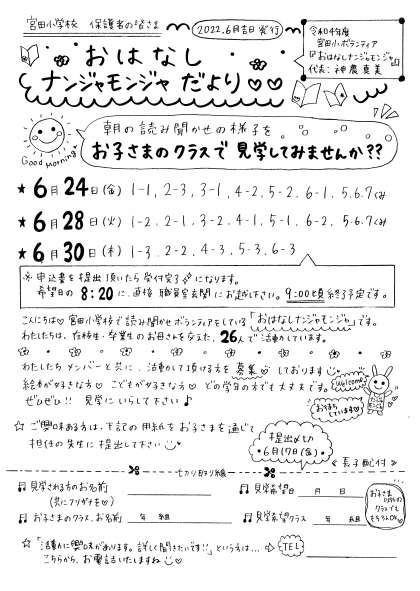 宮田小学校 保護者の皆さま
2022.6月吉日 発行
令和4年度
宮田小ボランティア
『おはなしナンジャモンジャ』
代表:神農真美
おはなし
ナンジャモンジャ だより♡♡
Good Morning♪
朝の読み聞かせの様子を
お子さまのクラスで 見学してみませんか??
★ 6月24日(金) 1-1, 2-3, 3-1, 4-2, 5-2, 6-1, 5.6.7くみ
★ 6月28日(火) 1-2, 2-1, 3-2, 4-1, 5-1, 6-2, 5.6.7くみ
★ 6月30日(木) 1-3, 2-2, 4-3, 5-3, 6-3
※ 申込書を提出頂いたら受付完了になります。
希望日の 8:20に、直接 職員玄関にお越し下さい。 9:00頃終了予定です。
こんにちは♡ 宮田小学校で読み聞かせボランティアをしている「おはなしナンジャモンジャ」です。
わたしたちは、在校生・卒業生のお母さんを交えた、26人で活動しています。
わたしたちメンバーと共に、活動して頂ける方を募集♡しております
絵本が好きな方♡ こどもが好きな方♡ どの学年の方でも大丈夫です。
Welcome
ぜひぜひ!! 見学にいらして下さい♪
お待ちしています♡
☆ ご興味ある方は、下記の用紙をお子さまを通じて
担任の先生に提出して下さい
提出〆切
★6月17日(金)★
《長子配付》
切り取り線
♫ 見学される方のお名前
(共にフリガナを♡)
♫ 見学希望日 月 日
♫ お子さまのクラス、お名前 年 組
♫ 見学希望クラス 年 組
お子さま以外のクラスでももちろんOK♡
☆ 「活動に興味があります。詳しく聞きたいです!!」という方は…
TEL
こちらから、お電話いたしますね